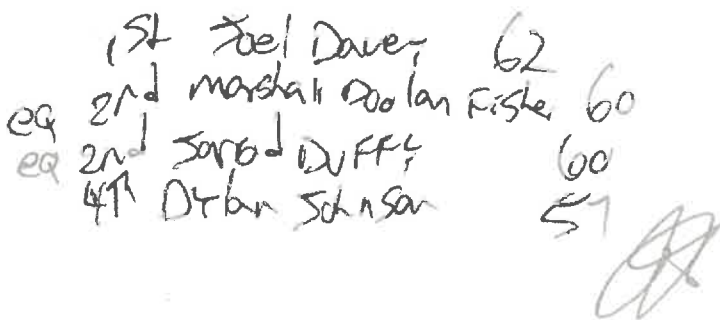 1st Joel Davey 62
eq 2nd Marshall Doolan Fisher 60
eq 2nd Jarrod Duffy 60
4th Dylan Johnson 57